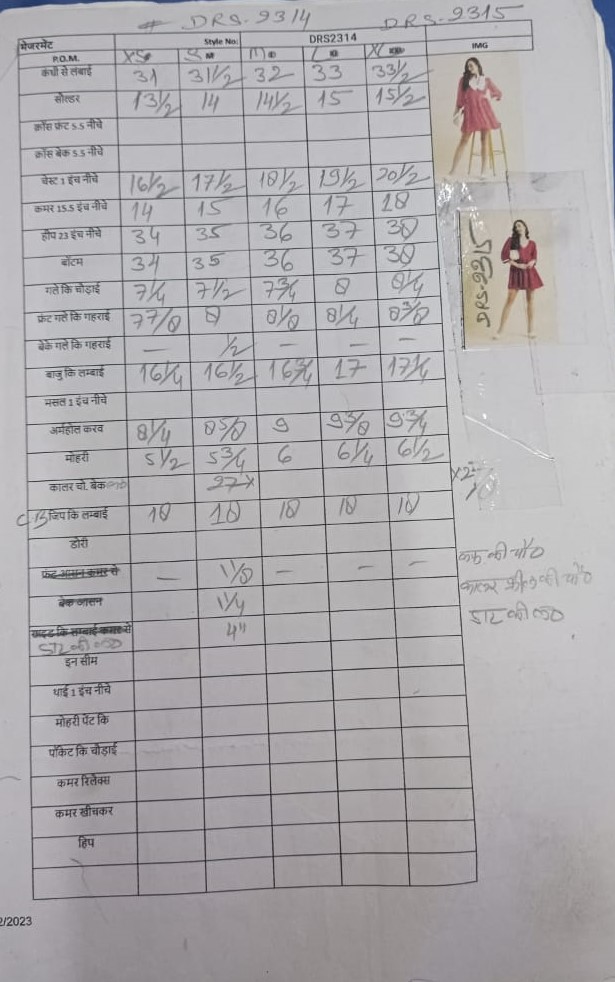 # DRS.9314 DRS.9315
मेजरमेंट Style No: DRS2314 IMG
P.O.M. XS S M L XL
कंधों से लंबाई 31 31 1/2 32 33 33 1/2
सोल्डर 13 1/2 14 14 1/2 15 15 1/2
क्रॉस फ्रंट 5.5 नीचे
क्रॉस बेक 5.5 नीचे
चेस्ट 1 इंच नीचे 16 1/2 17 1/2 18 1/2 19 1/2 20 1/2
कमर 15.5 इंच नीचे 14 15 16 17 18
हीप 23 इंच नीचे 34 35 36 37 38
बॉटम 34 35 36 37 38
गले कि चोड़ाई 7 1/4 7 1/2 7 3/4 8 8 1/4
DRS-9315
फ्रंट गले कि गहराई 7 7/8 8 8 1/8 8 1/4 8 3/8
बेक गले कि गहराई — 1/2 — — —
बाजु कि लम्बाई 16 1/4 16 1/2 16 3/4 17 17 1/4
मसल 1 इंच नीचे
अर्महोल करव 8 1/4 8 5/8 9 9 3/8 9 3/4
मोहरी 5 1/2 5 3/4 6 6 1/4 6 1/2
कालर चो. बेक
CB जिप कि लम्बाई 18 18 18 18 18
डोरी
फ्रंट आसन कमर से — 1 1/8 — — —
कफ की चौ०
बेक आसन 1 1/4
4"
डाट की ल०
डाट की ल०
इन सीम
थाई 1 इंच नीचे
मोहरी पेंट कि
पॉकेट कि चौड़ाई
कमर रिलेक्स
कमर खीचकर
हिप
2/2023